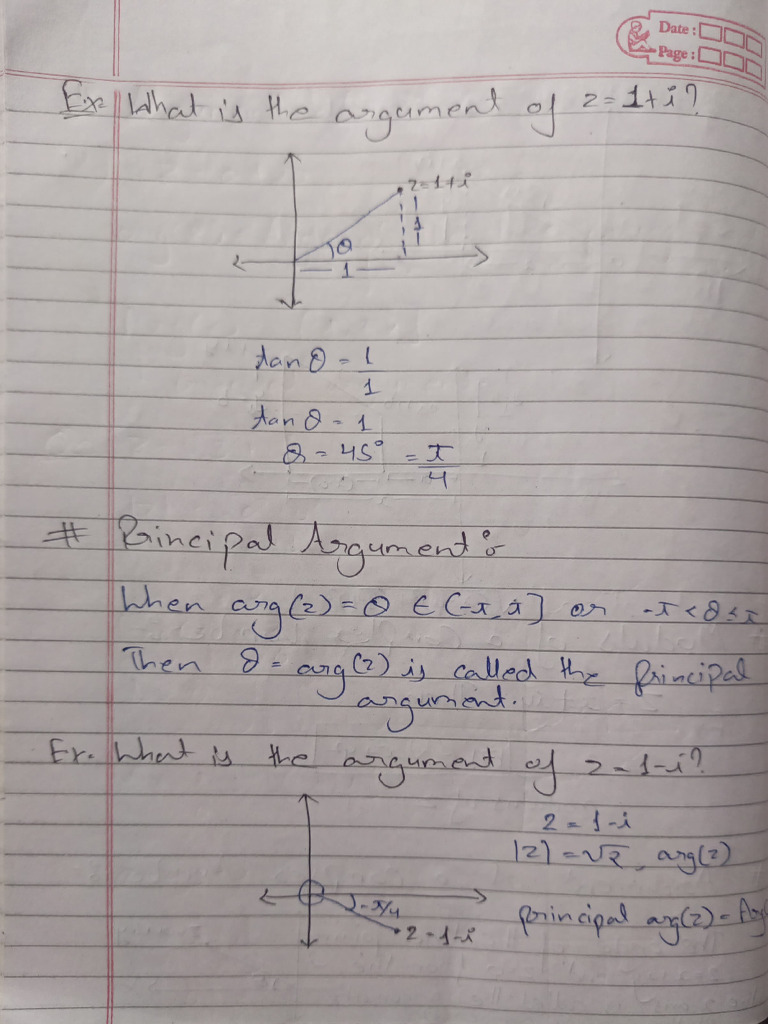 Date :
Page :
Ex. What is the argument of z = 1+i?
z=1+i
1
θ
1
tan θ = 1/1
tan θ = 1
θ = 45° = π/4
# Principal Argument :-
When arg(z) = θ ∈ (-π, π] or -π < θ ≤ π
Then θ = arg(z) is called the principal
argument.
Ex. What is the argument of z = 1-i?
z = 1-i
|z| = √2, arg(z)
-π/4
z = 1-i
principal arg(z) = Arg